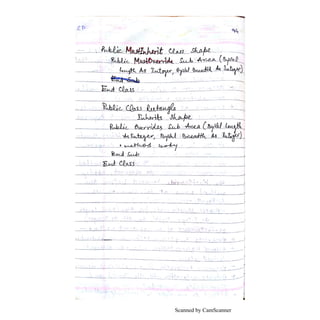 94
Public MustInherit Class Shape
Public MustOverride Sub Area (ByVal
length As Integer, ByVal Breadth As Integer)
End Sub
End Class
Public Class Rectangle
Inherits Shape
Public Overrides Sub Area (ByVal length
As Integer, ByVal Breadth As Integer)
' methods body
End Sub
End Class
Scanned by CamScanner